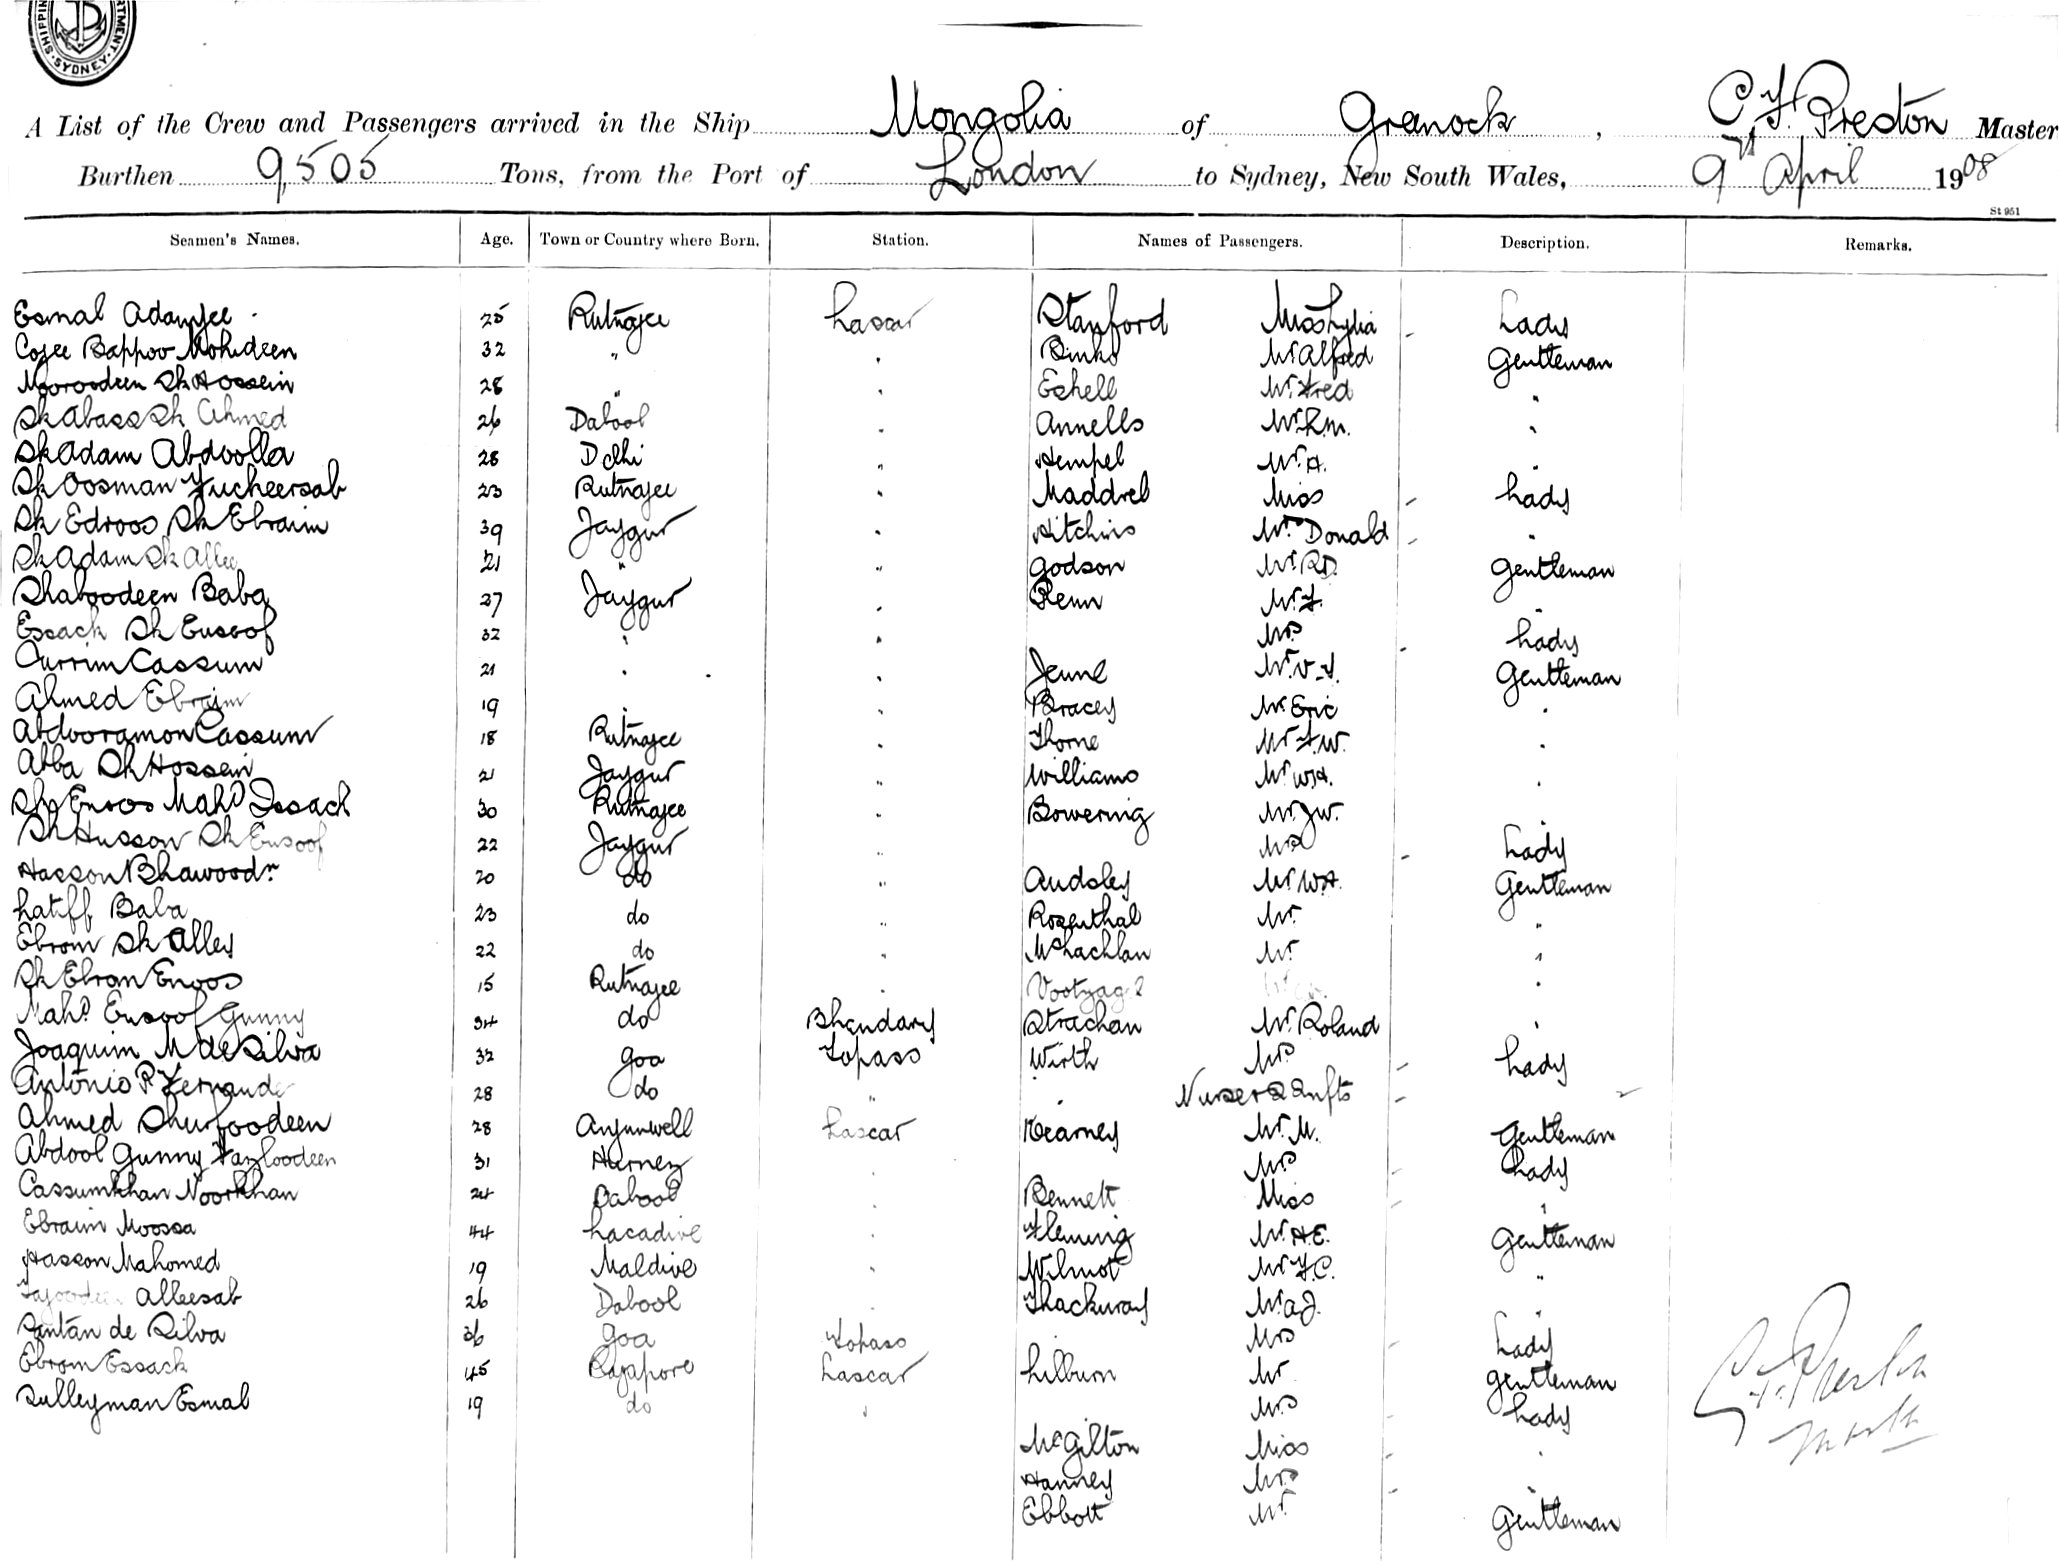 SHIPPING DEPARTMENT · SYDNEY ·
A List of the Crew and Passengers arrived in the Ship Mongolia of Greenock, C. F. Preston Master
Burthen 9,505 Tons, from the Port of London to Sydney, New South Wales, 9th April 1908
St 951
Seamen's Names. Age. Town or Country where Born. Station. Names of Passengers. Description. Remarks.
Esmal Adamjee 25 Rutnajee Lascar Stanford Miss Lydia Lady
Cojee Bappoo Mohideen 32 " " Binks Mr Alfred Gentleman
Nooroodeen Sk Hossein 28 " " Eshell Mr Fred "
Sk Abass Sk Ahmed 26 Dabool " Annells Mr R.M. "
Sk Adam Abdoolla 28 Delhi " Hempel Mr A. "
Sk Oosman Fucheersab 23 Rutnajee " Maddrel Miss Lady
Sk Edroos Sk Ebraim 39 Jaygur " Hitchins Mrs Donald "
Sk Adam Sk Allee 21 " " Godson Mr R.D. Gentleman
Shaboodeen Baba 27 Jaygur " Renn Mr F. "
Essack Sk Eusoof 32 " " Mrs Lady
Currim Cassum 21 " " Jeune Mr V. Gentleman
Ahmed Ebraim 19 " " Bracey Mr Eric "
Abdooramon Cassum 18 Rutnajee " Thorne Mr F.W. "
Abba Sk Hossein 21 Jaygur " Williams Mr W.H. "
Sk Enoos Mahd Issack 30 Rutnajee " Bowering Mr J.W. "
Sk Husson Sk Eusoof 22 Jaygur " Mrs Lady
Hasson Bhawoodn 20 do " Audsley Mr W.H. Gentleman
Latiff Baba 23 do " Rosenthal Mr "
Ebrom Sk Alley 22 do " McLachlan Mr "
Sk Ebrom Enoos 15 Rutnajee " "
Mahd Eusoof Gunny 34 do Bhandary Strachan Mr Roland "
Joaquim M de Silva 32 Goa Topass Wirth Mrs Lady
Antonio P. Fernande 28 do " " Nurse & 2 Infts
Ahmed Shurfoodeen 28 Anjunwell Lascar Kearney Mr M. Gentleman
Abdool Gunny Fazloodeen 31 Hurney " Mrs Lady
Cassumkhan Noorkhan 24 Dabool " Bennett Miss "
Ebraim Moossa 44 Lacadive " Fleming Mr H.E. Gentleman
Hasson Mahomed 19 Maldive " Wilmot Mr F.C. "
Tajoodeen Alleesab 26 Dabool " Thackuray Mr A.J. "
Santan de Silva 36 Goa Topass Mrs Lady
Ebrom Essack 45 Rajapore Lascar Lilburn Mr Gentleman
Sulleyman Esmal 19 do " Mrs Lady
McGilton Miss "
Hanney Mrs "
Ebbott Mr Gentleman
C. F. Preston
Master